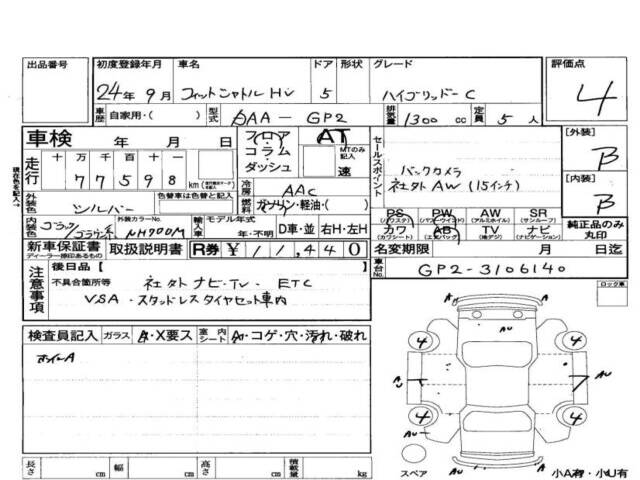 出品番号 初度登録年月 車名 ドア 形状 グレード 評価点
24年9月 フィットシャトルHV 5 ハイブリッドーC 4
車歴 自家用・( ) 型式 DAA-GP2 排気量 1300cc 定員 5人
車検 年 月 日 フロア AT セールスポイント [外装]
走行 十万千百十一 コラム MTのみ記入 B
77598km ダッシュ 速 バックカメラ [内装]
現在色を記入→
外装色 シルバー 色替車は色替と記入 冷房 AAC 社外AW(15インチ) B
燃料 ガソリン・軽油・( )
内装色 ブラック/ブラック系 外装カラーNo. NH700M 輸入車 モデル年式 年・不明 D車・並 右H・左H
PS(パワステ) PW(パワーウインドウ) AW(アルミホイル) SR(サンルーフ)
カワ(カワシート) AB(エアバック) TV(地デジ) ナビ(ナビゲーション) 純正品のみ丸印
新車保証書 ディーラー捺印あるもの 取扱説明書 R券 ¥11,440 名変期限 月 日迄
注意事項 後日品[ ] 車台No. GP2-3106140
不具合箇所等 社外ナビ・TV・ETC ロック車
VSA・スタッドレスタイヤセット車内
検査員記入 ガラス A・X要ス 室内シート A・コゲ・穴・汚れ・破れ
ホイールA
AU
4 4
A AU
4 4
AU
長さ cm 幅 cm 高さ cm 積載量 kg スペア 小A有・小U有